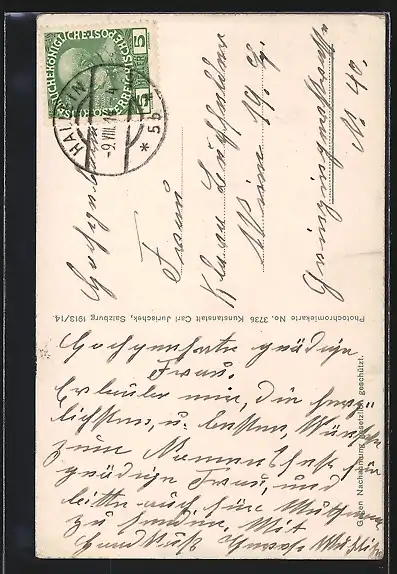 KAISERLICHE KÖNIGLICHE ÖSTERREICHISCHE POST
5 5
HALLEIN
-9.VIII.14
* 5b
Hochgeboren
Frau
Klara
Wien 19. Bg.
Grinzingerstrasse
No. 40.
Photochromiekarte No. 3736 Kunstanstalt Carl Jurischek, Salzburg 1913/14.
Gegen Nachahmung gesetzlich geschützt.
Hochgeehrte gnädige
Frau.
Erlauben mir, die herz=
lichsten, u. besten, Wünsche
zum Namensfest für
gnädige Frau, und
bitte auch für
zu senden. Mit
Handkuß